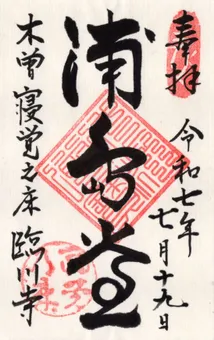 奉拝
令和七年
七月十九日
浦島堂
木曽寝覚之床
臨川寺